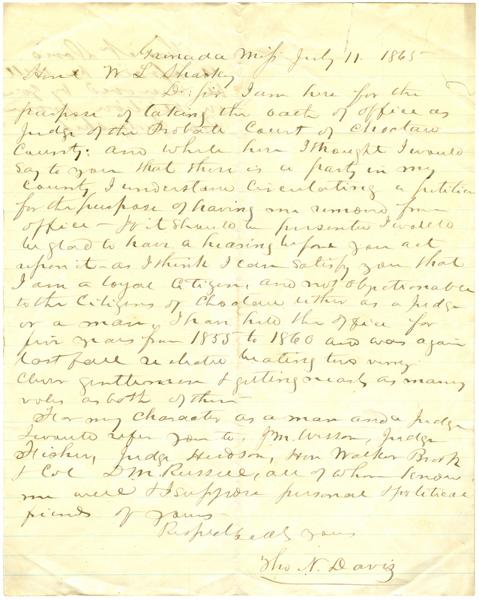 Grenada Miss July 11. 1865
Honl W L Sharkey
Dr Sir I am here for the
purpose of taking the oath of office as
Judge of the Probate Court of Choctaw
County: and while here I thought I would
say to you that there is a party in my
County I understand circulating a petition
for the purpose of having me removed from
office - If it should be presented I would
be glad to have a hearing before you act
upon it - as I think I can satisfy you that
I am a loyal Citizen, and not objectionable
to the Citizens of Choctaw either as a Judge
or a man, I have held the office for
five years from 1855 to 1860 and was again
last fall re elected beating two very
clever gentlemen & getting nearly as many
votes as both of them -
For my character as a man and a Judge
I would refer you to, J M. Judge
Fisher, Judge Hudson, Hon Walker Brook
& Col D M. Russell, all of whom know
me well & I suppose personal & political
friends of yours -
Respectfully yours
Tho N. Davis